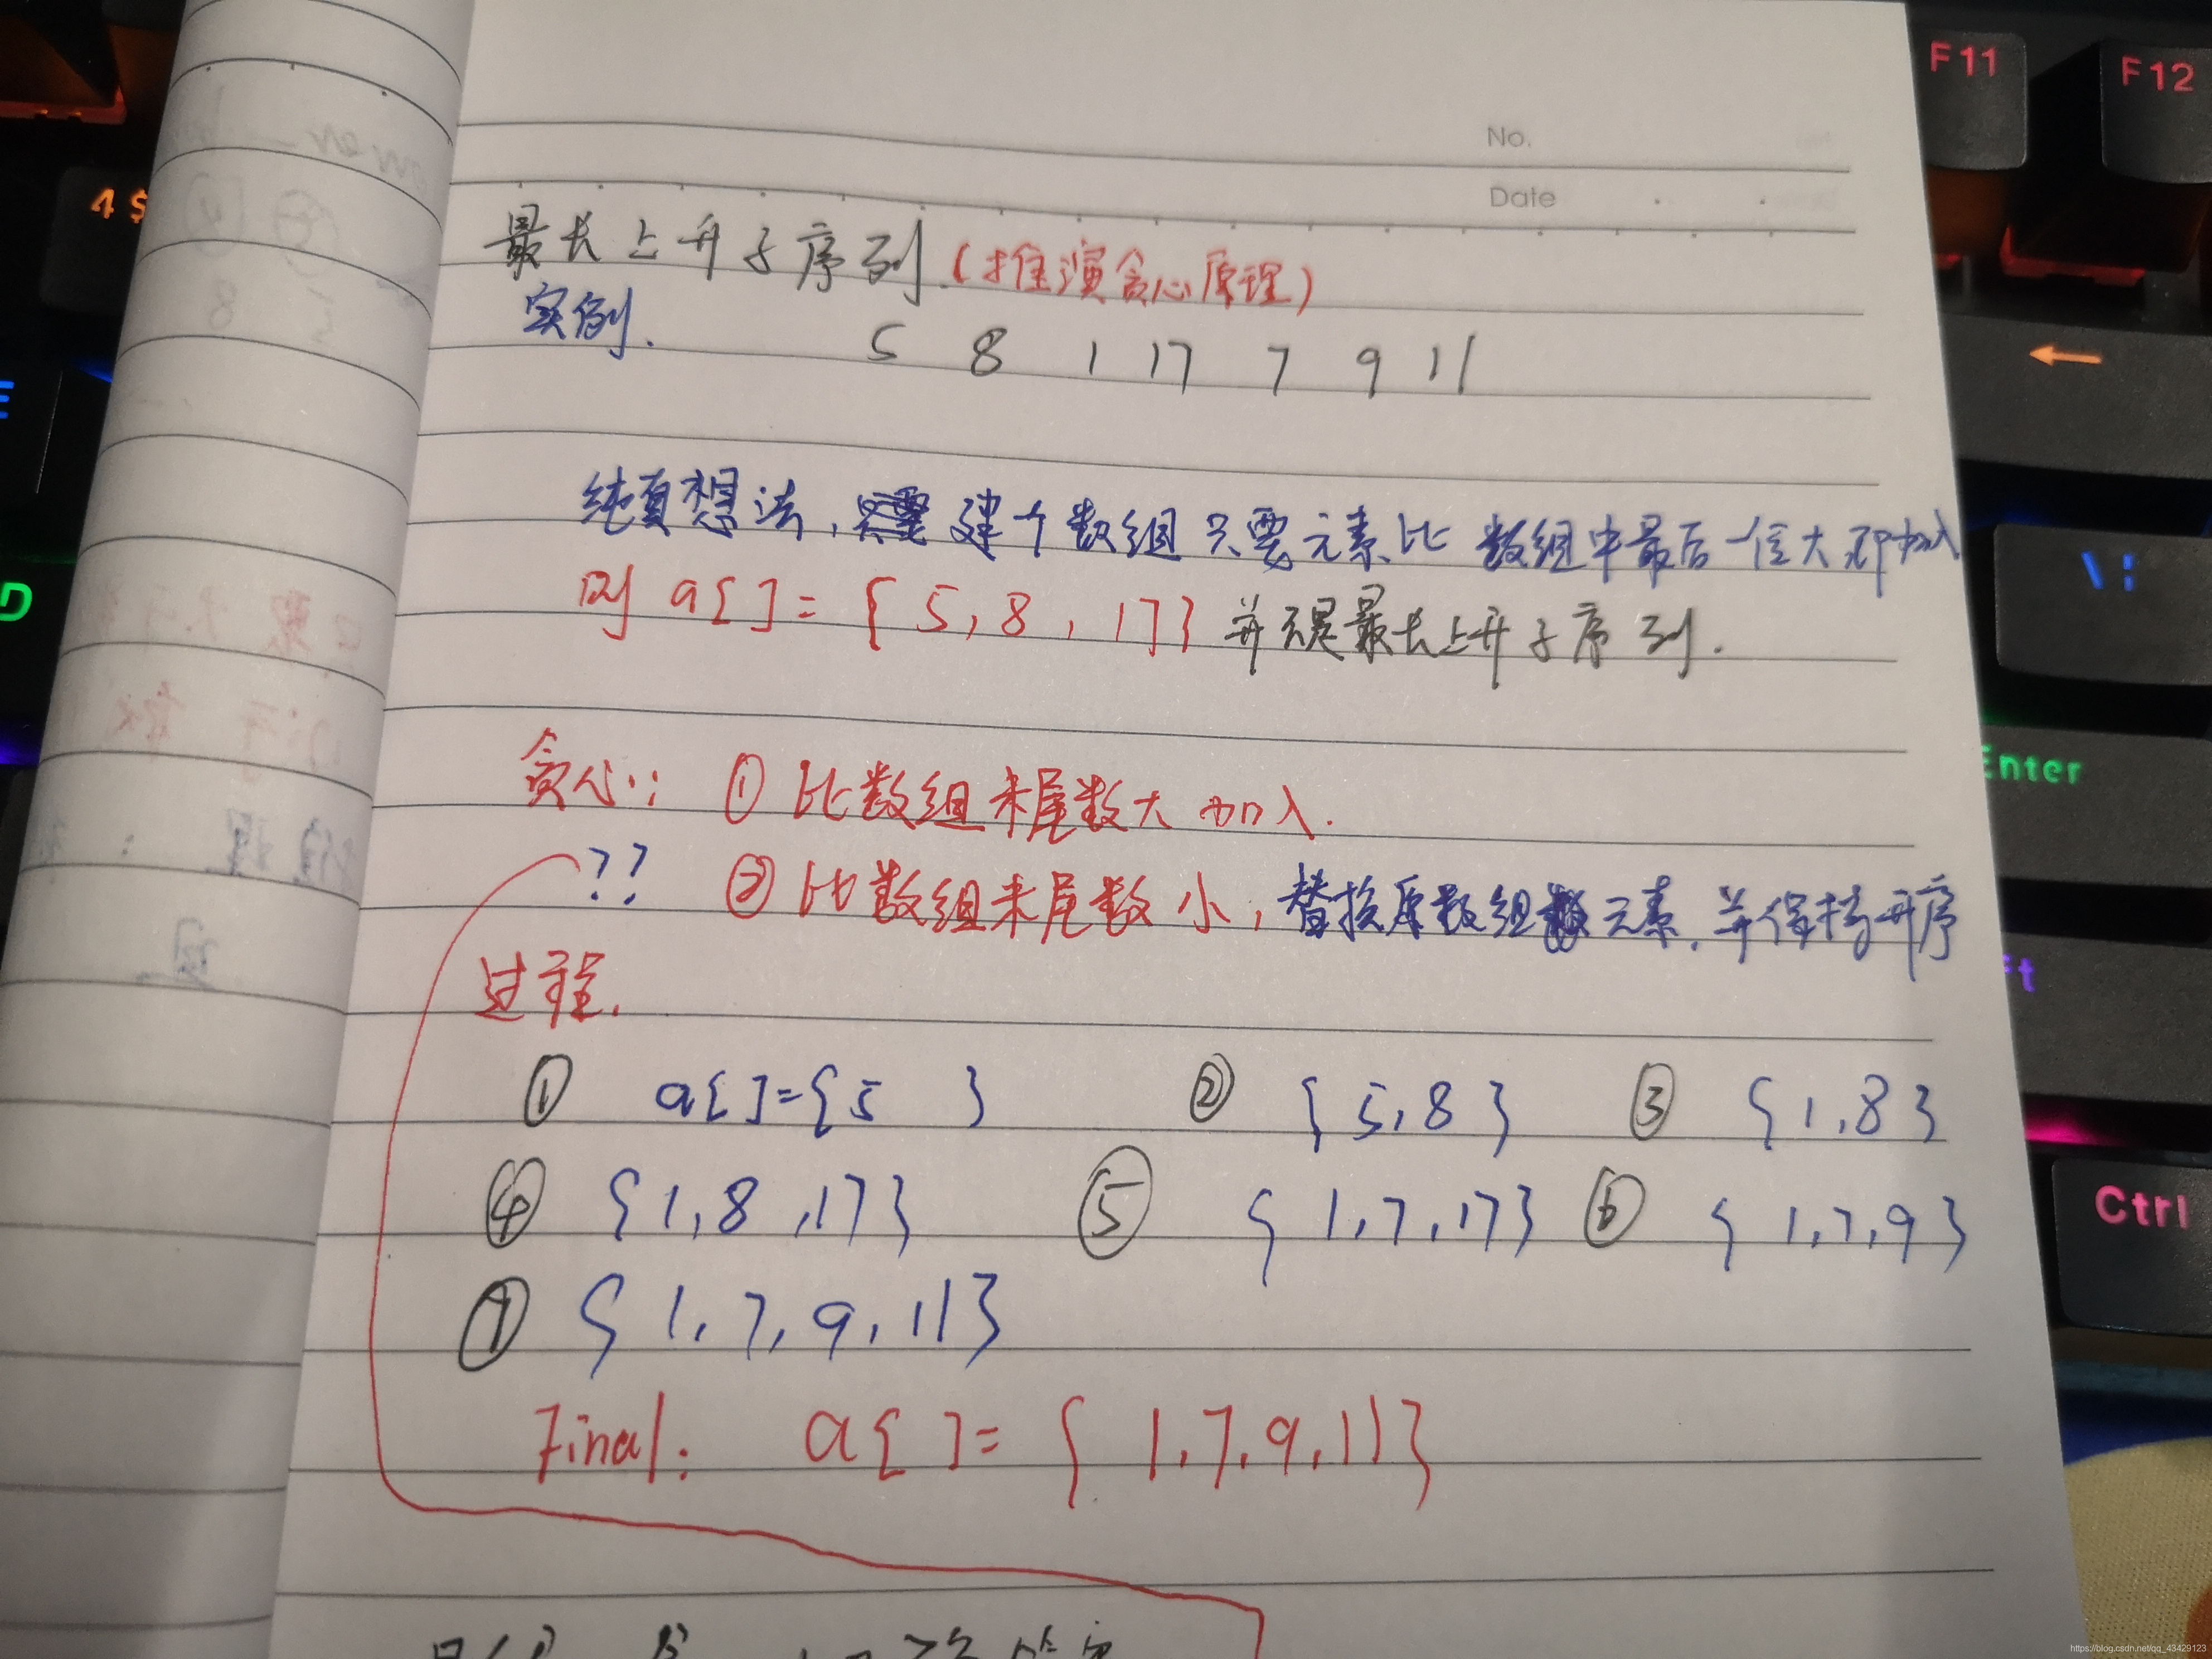 No.
Date
最长上升子序列(推演贪心原理)
实例. 5 8 1 17 7 9 11
纯真想法, 建个数组只要元素比数组中最后一位大即加入
则 a[ ]={5,8,17} 并不是最长上升子序列.
贪心: ① 比数组末尾数大加入.
?? ② 比数组末尾数小, 替换原数组元素, 并保持升序
过程.
① a[ ]={5 } ② {5,8} ③ {1,8}
④ {1,8,17} ⑤ {1,7,17} ⑥ {1,7,9}
⑦ {1,7,9,11}
Final: a[ ]={1,7,9,11}
F11
F12
4 $
←
\ |
D
Enter
Ctrl
https://blog.csdn.net/qq_43429123